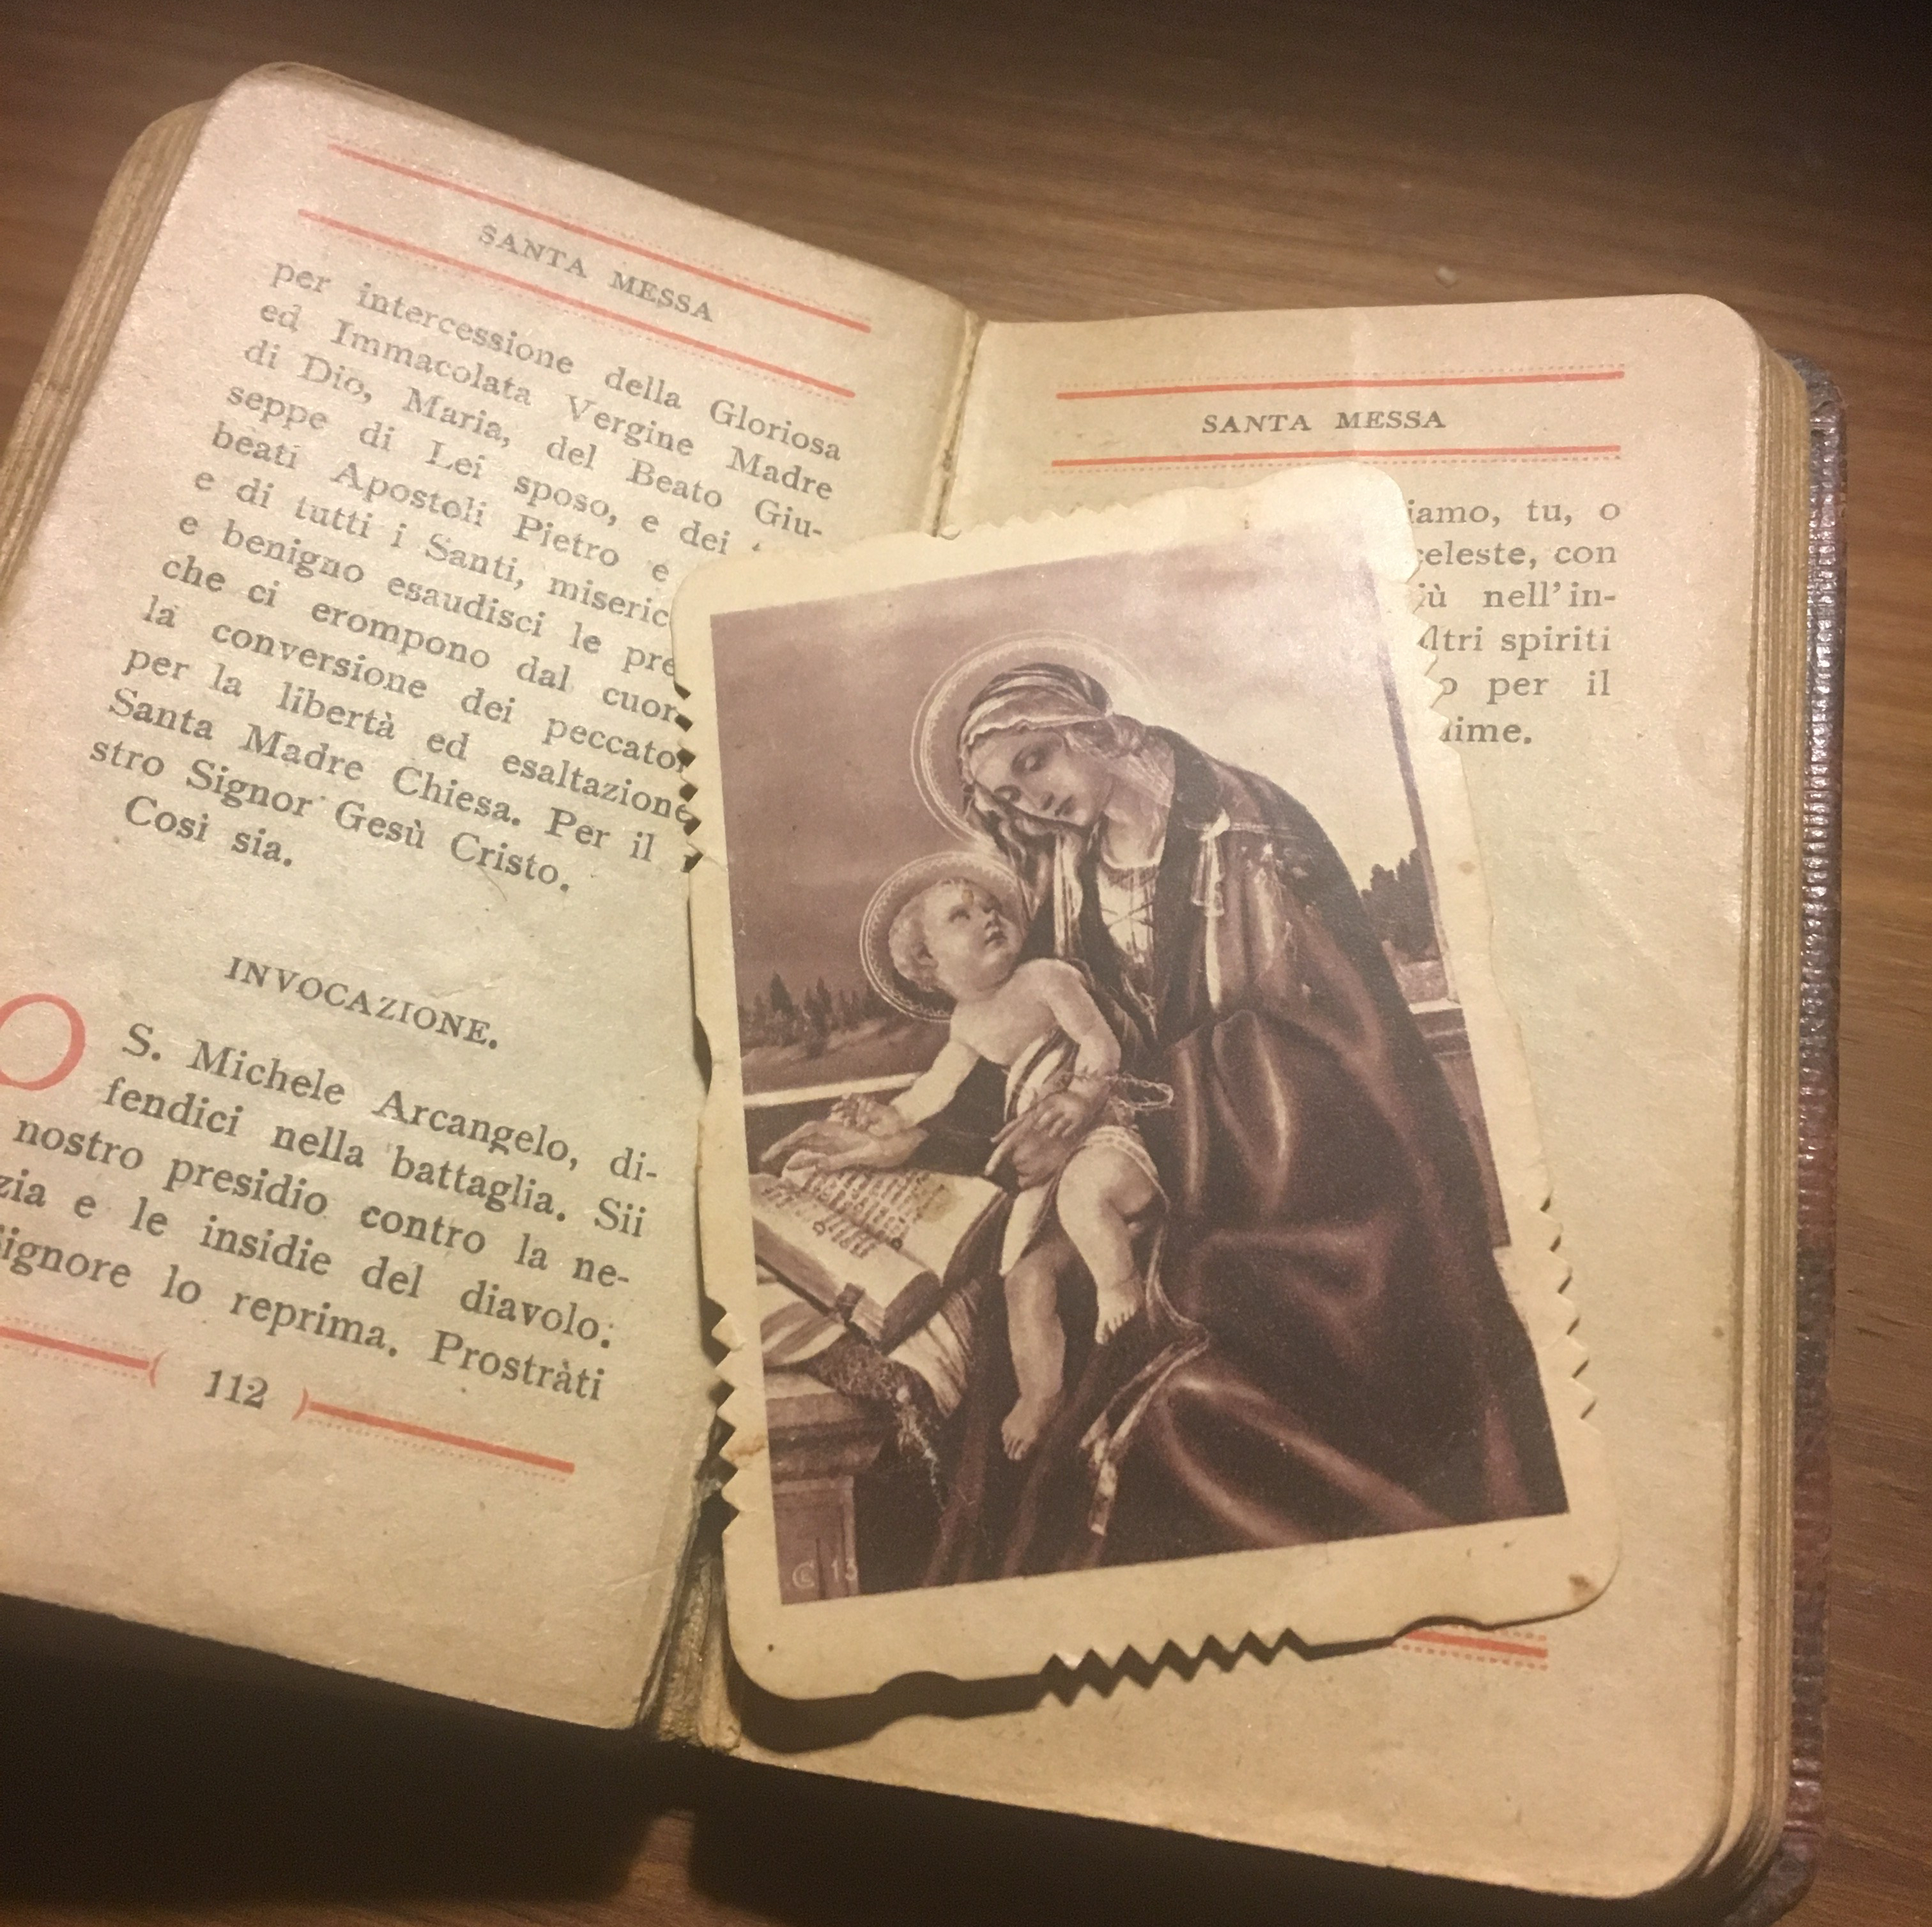 SANTA MESSA
per intercessione della Gloriosa
ed Immacolata Vergine Madre
di Dio, Maria, del Beato Giu-
seppe di Lei sposo, e dei
beati Apostoli Pietro e
e di tutti i Santi, miseric
e benigno esaudisci le pre
che ci erompono dal cuor
la conversione dei peccator
per la libertà ed esaltazione
Santa Madre Chiesa. Per il
stro Signor Gesù Cristo.
Cosi sia.
INVOCAZIONE.
O S. Michele Arcangelo, di-
fendici nella battaglia. Sii
nostro presidio contro la ne-
zia e le insidie del diavolo:
ignore lo reprima. Prostràti
112
SANTA MESSA
iamo, tu, o
celeste, con
iù nell'in-
ltri spiriti
o per il
ime.
13